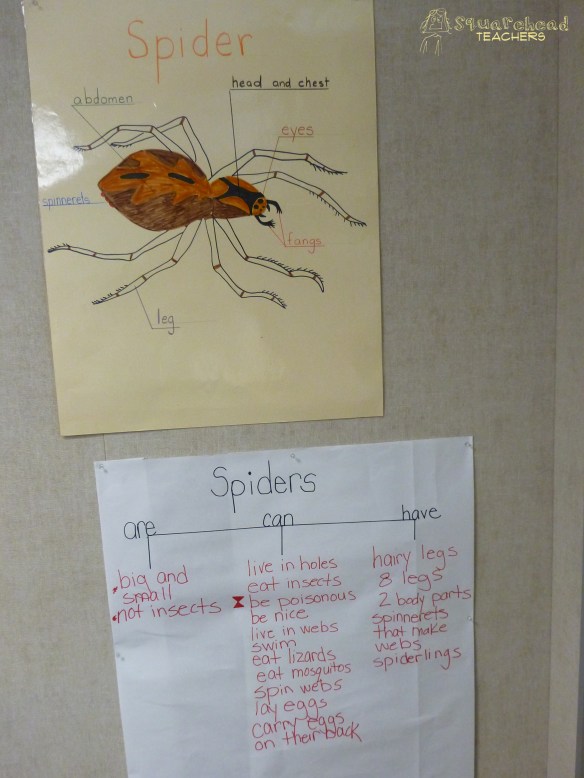 Squarehead
TEACHERS
Spider
head and chest
abdomen
eyes
spinnerets
fangs
leg
Spiders
are
can
have
big and
small
not insects
live in holes
eat insects
be poisonous
be nice
live in webs
swim
eat lizards
eat mosquitos
spin webs
lay eggs
carry eggs
on their back
hairy legs
8 legs
2 body parts
spinnerets
that make
webs
spiderlings